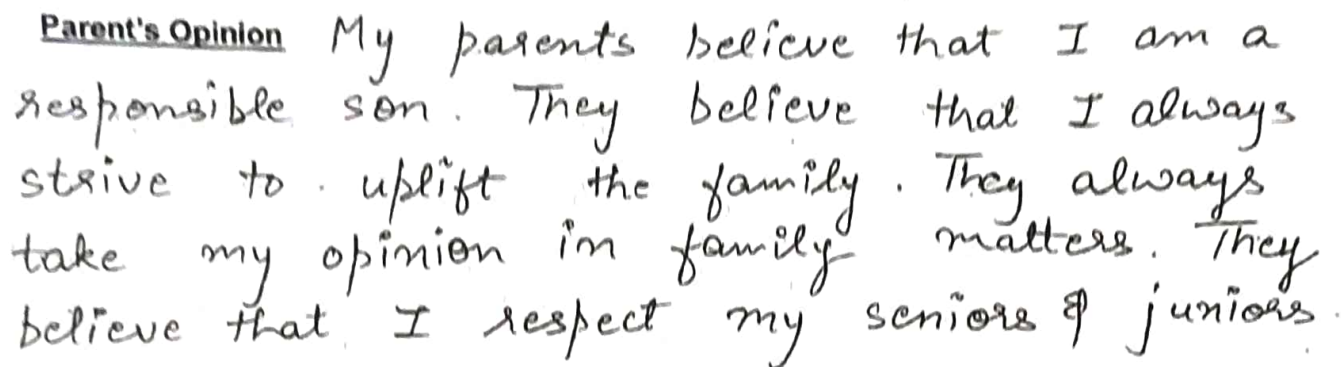 Parent's Opinion My parents believe that I am a
responsible son. They believe that I always
strive to uplift the family. They always
take my opinion in family matters. They
believe that I respect my seniors & juniors.